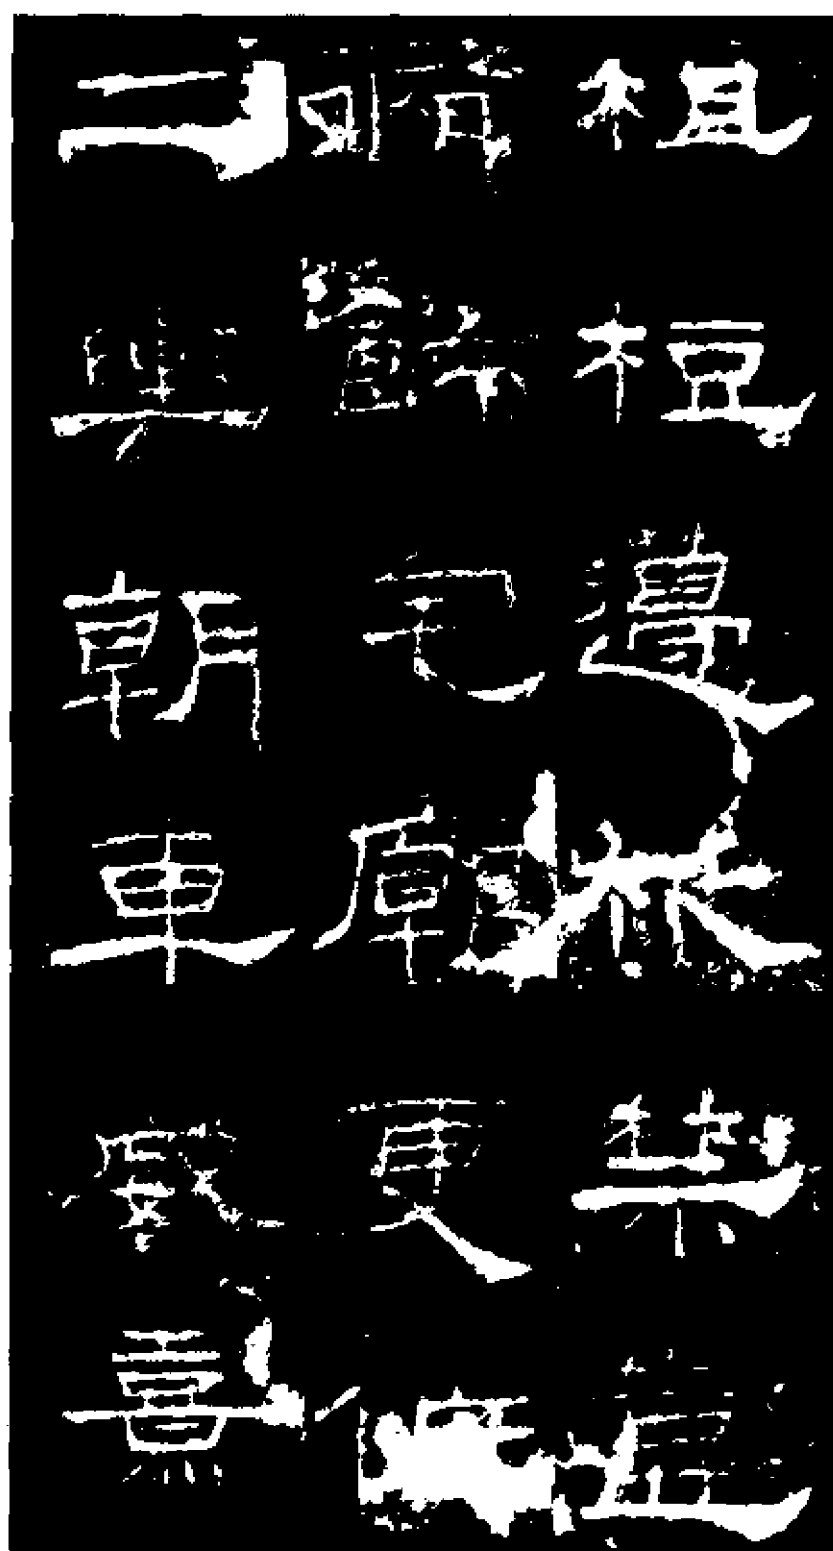 柤梪籩柉禁壺
脩飾宅廟更
二輿朝車威熹